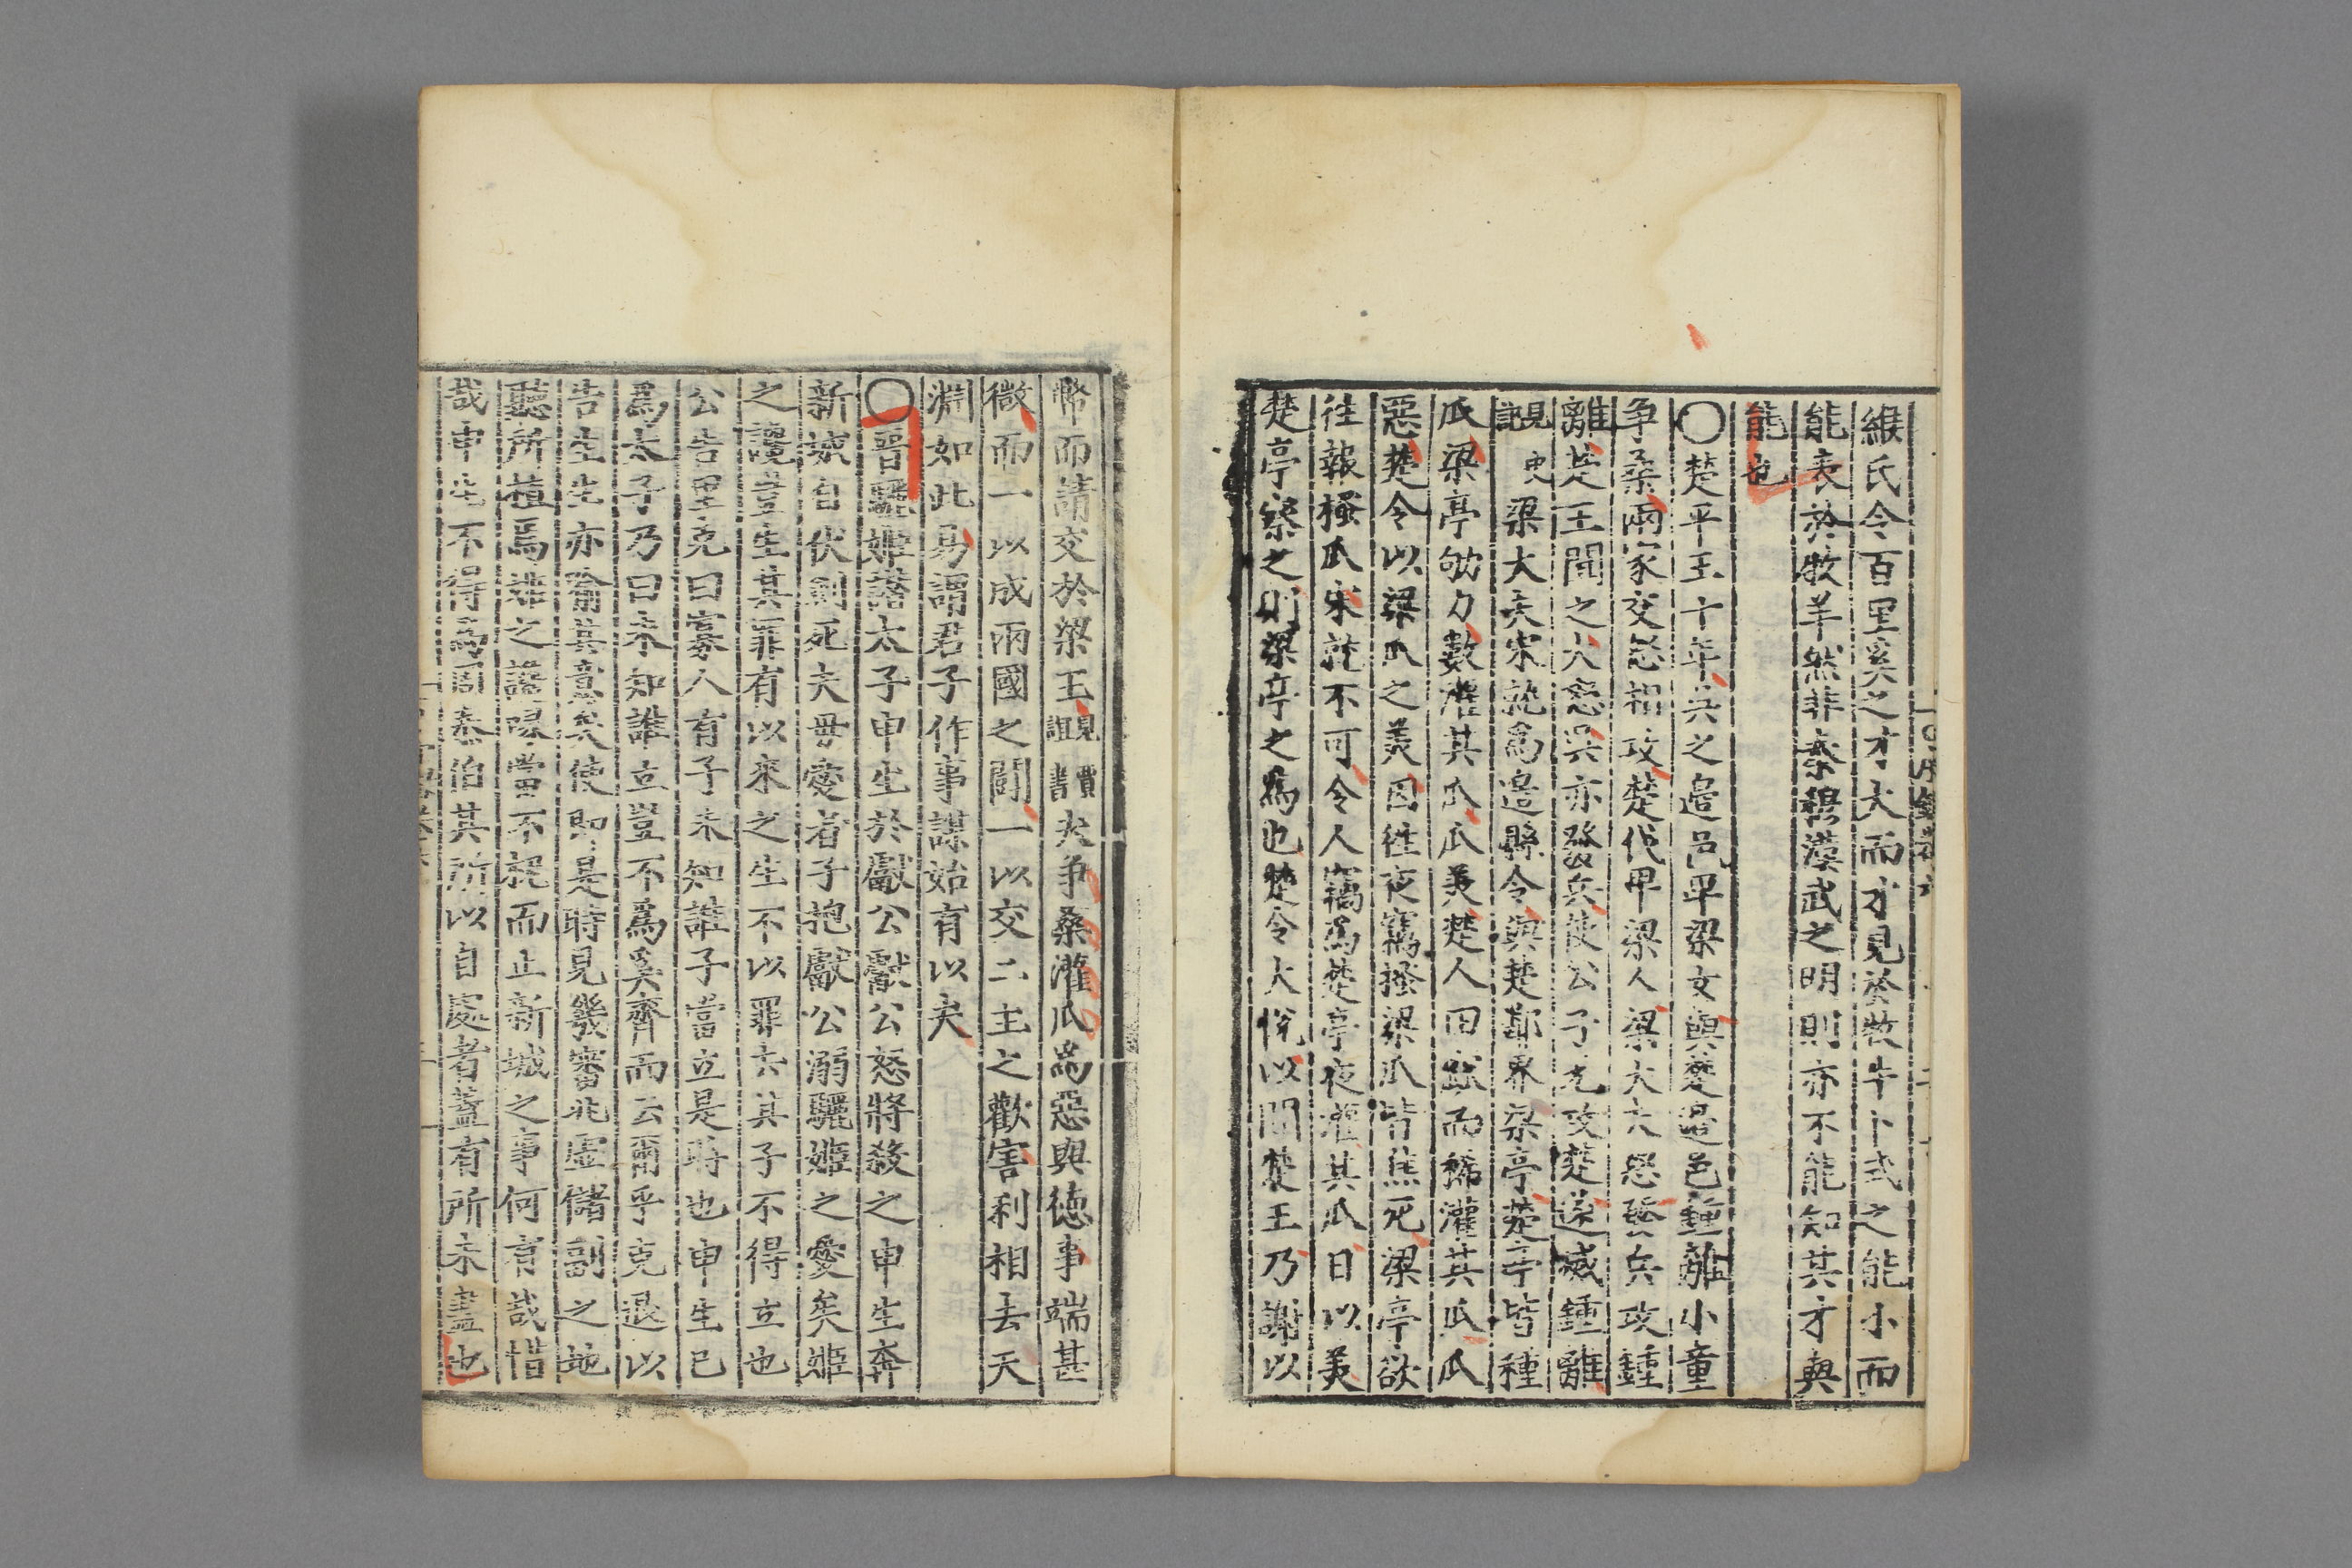 緱氏令百里奚之才大而才見於牧牛卜式之能小而
能表於牧羊然非秦穆漢武之明則亦不能知其才與
能也
〇楚平王十年吳之邊邑卑梁女與楚邊邑鍾離小童
争桑兩家交怒相攻楚伐卑梁人梁大夫怒發兵攻鍾
離楚王聞之大怒吳亦發兵使公子光攻楚遂滅鍾離
見史記梁大夫宋就爲邊縣令與楚鄰界梁亭楚亭皆種
瓜梁亭劬力數灌其瓜瓜美楚人田窳而稀灌其瓜瓜
惡楚令以梁瓜之美因往夜竊搔梁瓜皆焦死梁亭欲
往報搔瓜宋就不可令人竊爲楚亭夜灌其瓜日以美
楚亭察之則梁亭之爲也楚令大悅以聞楚王乃謝以
幣而請交於梁王見賈誼書夫争桑灌瓜爲惡與德事端甚
微而一以成兩國之鬪一以交二主之歡害利相去天
淵如此易謂君子作事謀始有以夫
〇晉驪姬譖太子申生於獻公獻公怒將殺之申生奔
新城自伏劍死夫毋愛者子抱獻公溺驪姬之愛矣姬
之讒豈生其罪有以來之生不以罪亦其子不得立也
公告里克曰寡人有子未知誰子當立是時也申生已
爲太子乃曰未知誰立豈不爲奚齊而云爾乎克退以
告生生亦喻其意矣使即是時見幾審兆虛儲副之地
聽所植焉雖之譖啄當不抵而止新城之事何有哉惜
哉申生不得爲周泰伯其所以自處者蓋有所未盡也